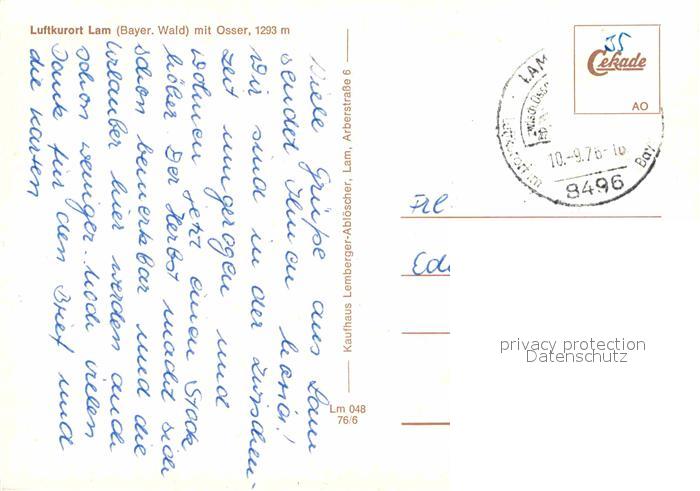 Luftkurort Lam (Bayer. Wald) mit Osser, 1293 m
Viele Grüße aus Lam
sendet Ihnen
Wir sind in der Zwischen-
zeit umgezogen und
wohnen jetzt einen Stock
höher. Der Herbst macht sich
schon bemerkbar und die
Urlauber hier werden auch
schon weniger. vielen
Dank für den Brief und
die Karten
Kaufhaus Lemberger-Ablöscher, Lam, Arberstraße 6
Lm 048
76/6
35
Cekade
AO
LAM
10.-9.76-16
Bay
8496
Frl.
Edi
privacy protection
Datenschutz